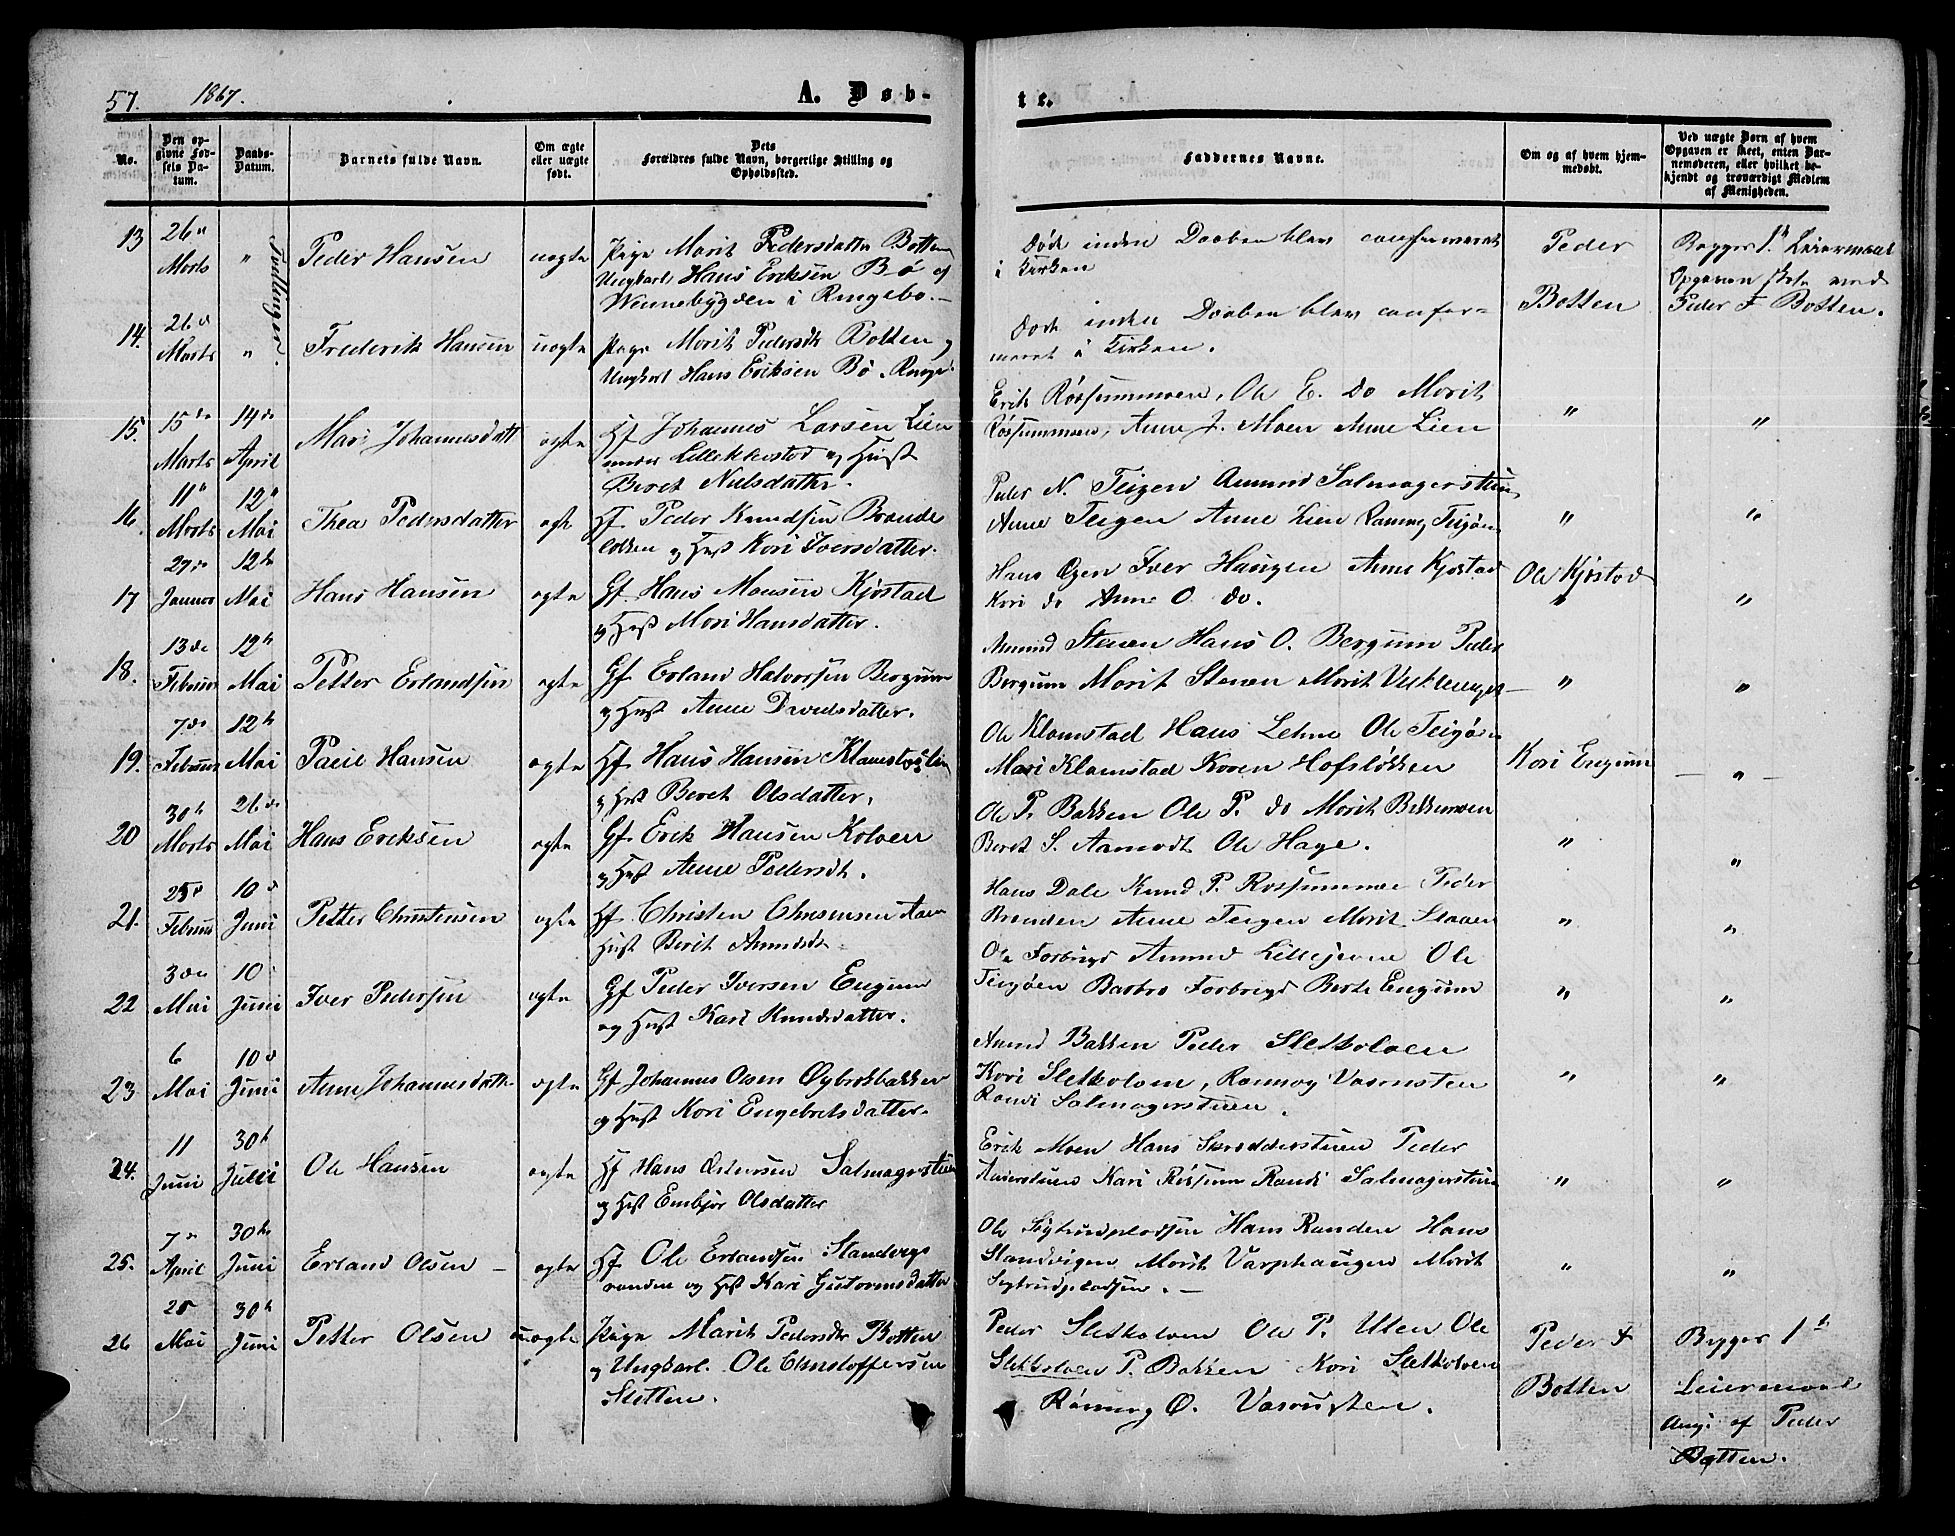 57. 1867. A. Døb-
te.
No.
Den op-
givne Fød-
sels Da-
tum.
Daabs-
Datum.
Barnets fulde Navn.
Om ægte
eller uægte
født.
Dets
Forældres fulde Navn, borgerlige Stilling og
Opholdssted.
Faddernes Navne.
Om og af hvem hjem-
medøbt.
Ved uægte Børn af hvem
Opgaven er skeet, enten Bar-
nemoderen, eller hvilket be-
kjendt og troværdigt Medlem
af Menigheden.
13 26de Marts " Tvillinger Peder Hansen uægte
Pige Marit Pedersdatter Botten
Ungkarl Hans Eriksen Bø af
Wennebygden i Ringebo.—
Døde inden Daaben blev confirmeret
i Kirken
Peder
Botten
Begges 1ste Leiermaal
Opgaven skete ved
Peder F Botten.
14. 26de Marts " Frederik Hansen uægte
Pige Marit Pedersdt Botten og
Ungkarl Hans Eriksen Bø Ringeb
Døde inden Daaben blev confir-
meret i Kirken.
15. 15de Marts 14de April Mari Johannesdatt ægte
Hf Johannes Larsen Lien
under Lillekkestad og Hust
Beret Nielsdatter.
Erik Røssummoen, Ole E. do Marit
Røssummoen, Anne J. Moen Anne Lien
" "
16. 11te Marts 12te Mai Thea Pedersdatter ægte
Hf Peder Knudsen Brænde
løkken og Hust Kari Iversdatter.
Peder N. Teigen Amund Salmagerstuen
Anne Teigen Anne Lien Rønnog Teigøen
" "
17 27de Januar 12te Mai Hans Hansen ægte
Gf. Hans Monsen Kjøstad
og Hust Mari Hansdatter.
Hans Øyen Iver Haugen Anne Kjøstad
Kari do Anne O. do.
Ole Kjøstad
" "
18. 13de Februar 12te Mai Petter Erlandsen ægte
Gf Erland Halvorsen Bergum
og Hust Anne Davidsdatter.
Amund Stenen Hans O. Bergum Peder
Bergum Marit Stenen Marit
" "
19. 7de Februar 12te Mai Pauel Hansen ægte
Hf Hans Hansen Klamstadlien
og Hust Beret Olsdatter,
Ole Klomstad Hans Lehne Ole Teigøen
Mari Klomstad Karen Hofsløkken
Kari Engum
— " —
20 30te Marts 26de Mai Hans Eriksen ægte
Gf Erik Hansen Kolven
og Hust Anne Pedersdt.
Ole P. Bakken Ole P. do Marit Bekkemoen
Beret S. Aamodt Ole Hage.
" "
21. 25de Februar 10de Juni Petter Christensen ægte
Hf Christen Christensen Aaen
Hust Berit Amundsdt
Hans Dale Knud P. Rossummoe Peder
Brænden Anne Teigen Marit Staaen
" "
22 3die Mai 10de Juni Iver Pedersen ægte
Gf Peder Iversen Engum
og Hust Kari Knudsdatter.
Ole Forbrigd Amund Lillejevne Ole
Teigøen Barbro Forbrigd Berte Engum
" "
23 6 Mai 10de Juni Anne Johannesdatt ægte
Gf Johannes Olsen Øybrekbakken
og Hust Kari Engebretsdatter.
Amund Bakken Peder Sletkolven
Kari Sletkolven, Rønnog Vasrusten
Randi Salmagerstuen.
" "
24. 11 Juni 30te Julii Ole Hansen ægte
Hf Hans Østensen Salmagerstuen
og Hust Embjør Olsdatter
Erik Moen Hans Skrædderstuen Peder
Auverstuen Kari Røssum Randi Salmagerstuen
" "
25. 7de April 30te Juni Erland Olsen — ægte
Hf Ole Erlandsen Standvegs
randen og Hust Kari Guttormsdatter
Ole Sygtrudpladsen Hans Randen Hans
Standvigen Marit Varphaugen Marit
Sygtrudpladsen. —
" "
26 25 Mai 30te Juni Petter Olsen uægte
Pige Marit Pedersdtr Botten
og Ungkarl. Ole Christoffersen
Sletten.
Peder Sletkolven Ole P. Ulen Ole
Sletkolven P. Bakken Kari Sletkolven
Rønnog Ø. Vasrusten.
Peder F
Botten
Begges 1ste
Leiermaal
Ang. af Peder
Botten.